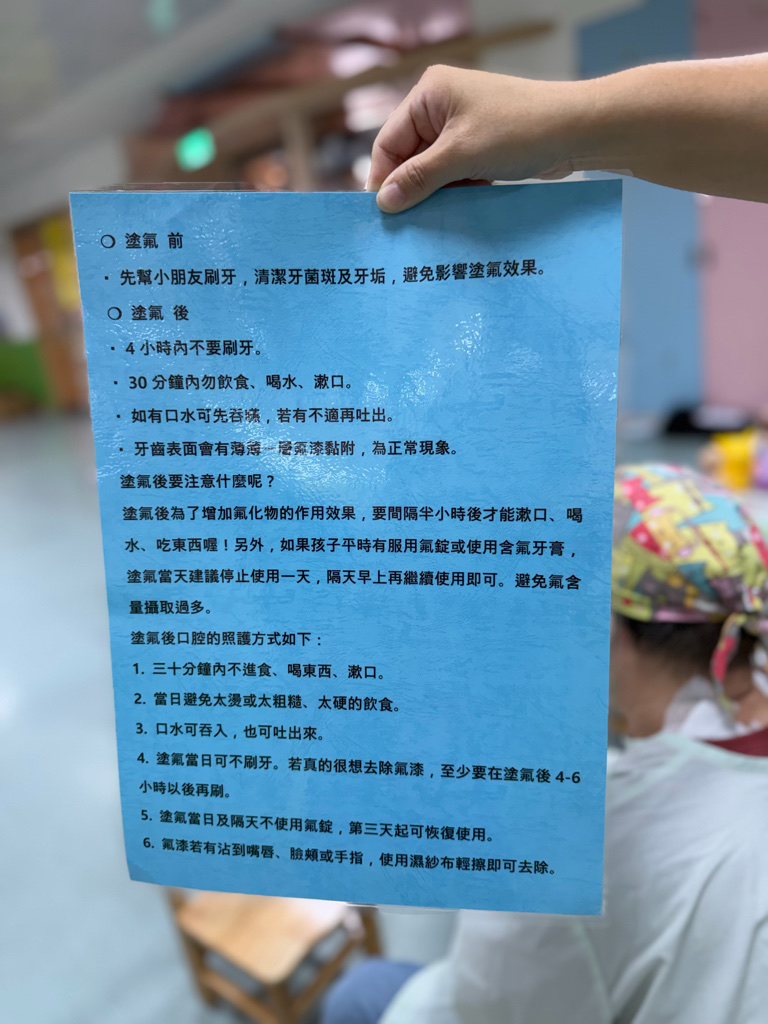 ○ 塗氟 前
・先幫小朋友刷牙，清潔牙菌斑及牙垢，避免影響塗氟效果。
○ 塗氟 後
・4 小時內不要刷牙。
・30 分鐘內勿飲食、喝水、漱口。
・如有口水可先吞嚥，若有不適再吐出。
・牙齒表面會有薄薄一層氟漆黏附，為正常現象。
塗氟後要注意什麼呢？
塗氟後為了增加氟化物的作用效果，要間隔半小時後才能漱口、喝
水、吃東西喔！另外，如果孩子平時有服用氟錠或使用含氟牙膏，
塗氟當天建議停止使用一天，隔天早上再繼續使用即可。避免氟含
量攝取過多。
塗氟後口腔的照護方式如下：
1. 三十分鐘內不進食、喝東西、漱口。
2. 當日避免太燙或太粗糙、太硬的飲食。
3. 口水可吞入，也可吐出來。
4. 塗氟當日可不刷牙。若真的很想去除氟漆，至少要在塗氟後 4-6
小時以後再刷。
5. 塗氟當日及隔天不使用氟錠，第三天起可恢復使用。
6. 氟漆若有沾到嘴唇、臉頰或手指，使用濕紗布輕擦即可去除。